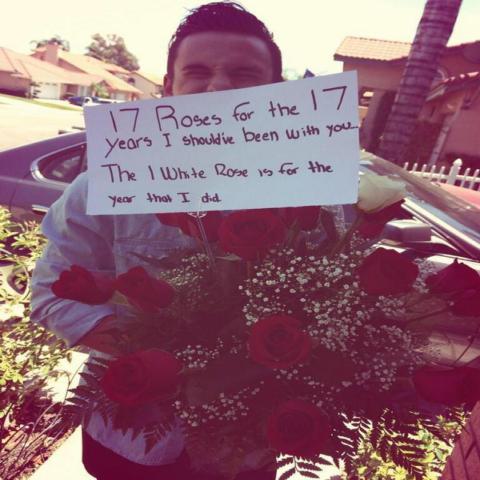 17 Roses for the 17
years I should've been with you...
The 1 White Rose is for the
year that I did.